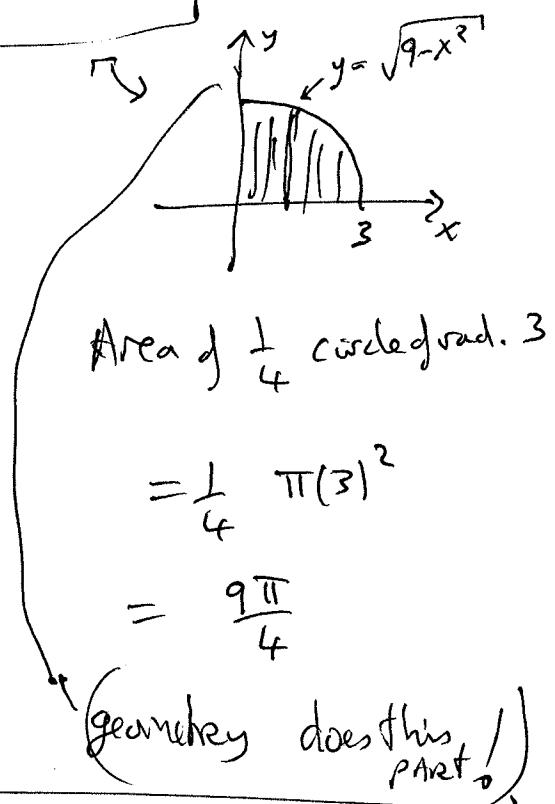 y
y = √9-x²
3
x
Area of 1/4 circle of rad. 3
= 1/4 π(3)²
= 9π/4
(geometry does this
PART!)